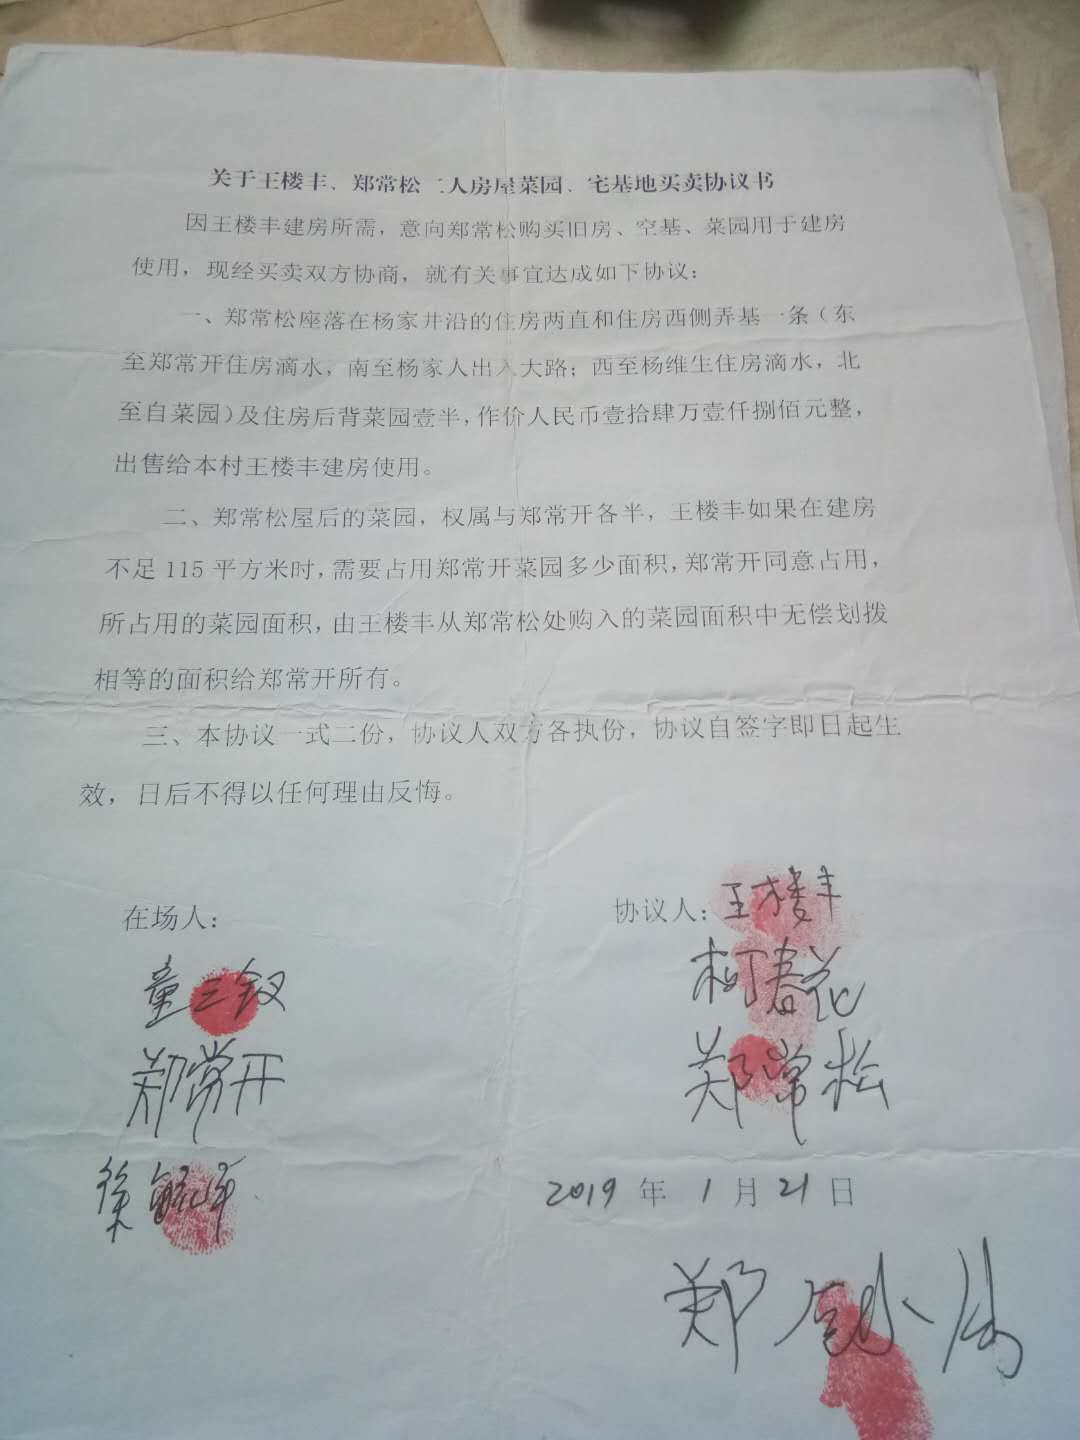 关于王楼丰、郑常松二人房屋菜园、宅基地买卖协议书
因王楼丰建房所需，意向郑常松购买旧房、空基、菜园用于建房
使用，现经买卖双方协商，就有关事宜达成如下协议：
一、郑常松座落在杨家井沿的住房两直和住房西侧弄基一条（东
至郑常开住房滴水，南至杨家人出入大路；西至杨维生住房滴水，北
至自菜园）及住房后背菜园壹半，作价人民币壹拾肆万壹仟捌佰元整，
出售给本村王楼丰建房使用。
二、郑常松屋后的菜园，权属与郑常开各半，王楼丰如果在建房
不足115平方米时，需要占用郑常开菜园多少面积，郑常开同意占用，
所占用的菜园面积，由王楼丰从郑常松处购入的菜园面积中无偿划拨
相等的面积给郑常开所有。
三、本协议一式二份，协议人双方各执份，协议自签字即日起生
效，日后不得以任何理由反悔。
在场人：
童三钗
郑常开
徐
协议人：王楼丰
柯春花
郑常松
2019年1月21日
郑